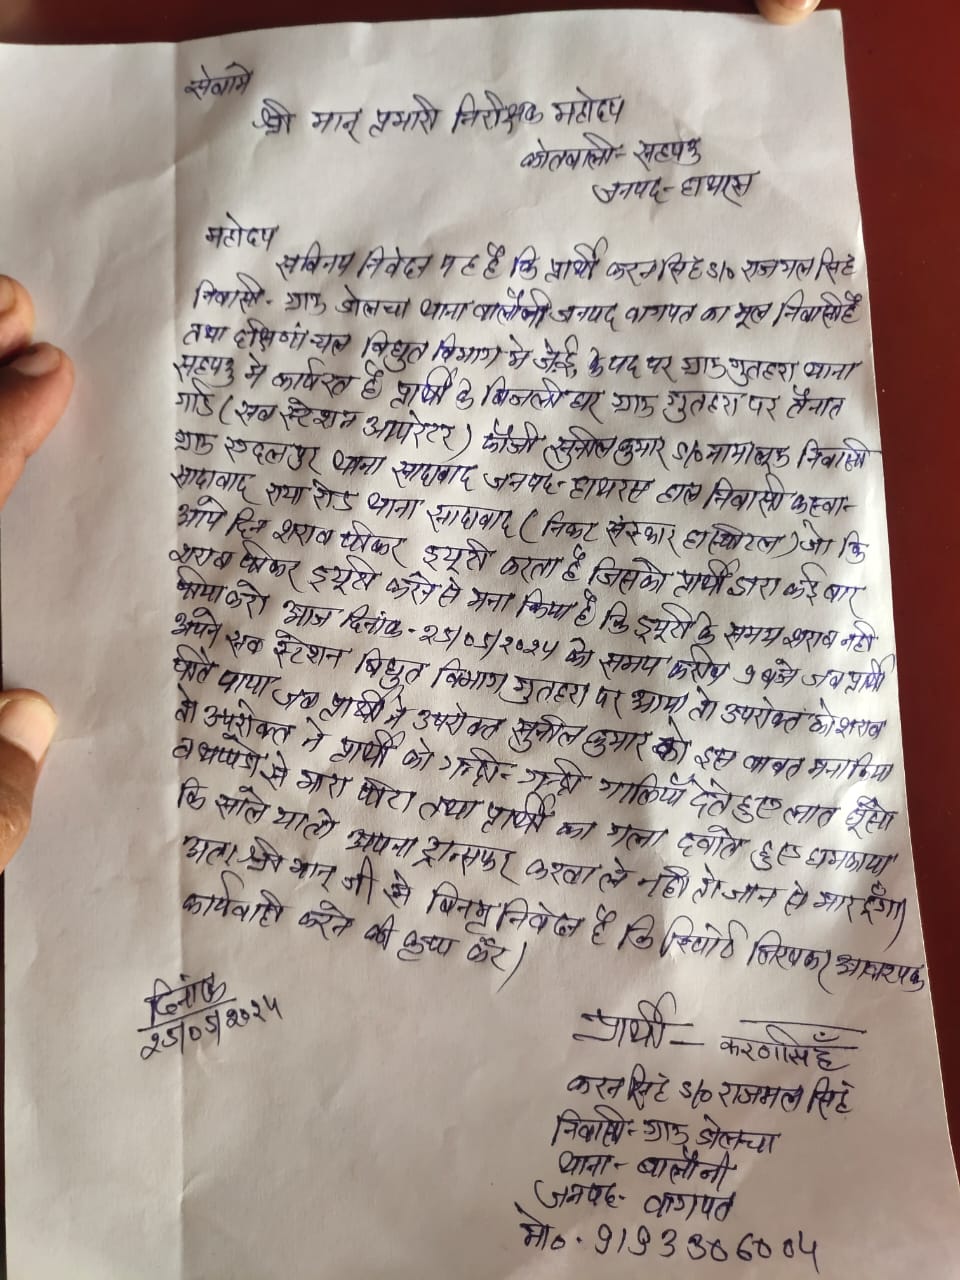 सेवामे
श्री मान् प्रभारी निरीक्षक महोदय
कोतवाली- सहपऊ
जनपद- हाथरस
महोदय
सविनय निवेदन यह है कि प्रार्थी करन सिंह S/o राजमल सिंह
निवासी- ग्राम डोलचा थाना बालौनी जनपद वागपत का मूल निवासी है
तथा दक्षिणांचल विधुत विभाग मे जेई के पद पर ग्राम गुतहरा थाना
सहपऊ मे कार्यरत है प्रार्थी के बिजली घर ग्राम गुतहरा पर तैनात
गार्ड (सब स्टेशन आपरेटर) फौजी सुनील कुमार S/o निवासी
ग्राम थाना सादाबाद जनपद- हाथरस हाल निवासी कस्वा-
सादावाद राया रोड थाना सादावाद (निकट संस्कार हास्पिटल) जो कि
आये दिन शराब पीकर ड्यूटी करता है जिसको प्रार्थी द्वारा कई बार
शराब पीकर ड्यूटी करने से मना किया है कि ड्यूटी के समय शराब नही
पीया करो आज दिनांक- 25/05/2024 को समय करीब 9 बजे जब प्रार्थी
अपने सब स्टेशन विधुत विभाग गुतहरा पर आया तो उपरोक्त को शराब
पीते पाया जब प्रार्थी ने उपरोक्त सुनील कुमार को इस बावत मना किया
तो उपरोक्त ने प्रार्थी को गन्दी- गन्दी गालियाँ देते हुए लात घूंसो
व थप्पडो से मारा पीटा तथा प्रार्थी का गला दवाते हुए धमकाया
कि साले या तो अपना ट्रान्सफर करवा ले नही तो जान से मार दूँगा।
अतः श्री मान् जी से विनम्र निवेदन है कि रिपोर्ट लिखकर आवश्यक
कार्यवाही करने की कृपा करें।
दिनांक
25/05/2024
प्रार्थी - करणसिहँ
करन सिंह S/o राजमल सिंह
निवासी- ग्राम डोलचा
थाना- बालौनी
जनपद- वागपत
मो०- 9193306004